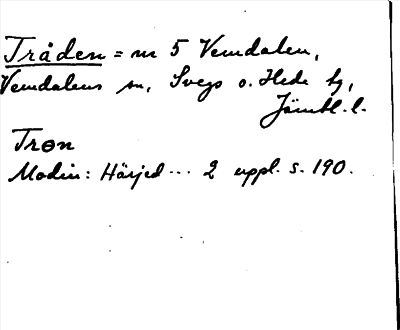 Tråden = nr 5 Vemdalen,
Vemdalens sn, Svegs o. Hede tg,
Jämtl. l.
Trøn
Modin: Härjed... 2 uppl. s. 190.